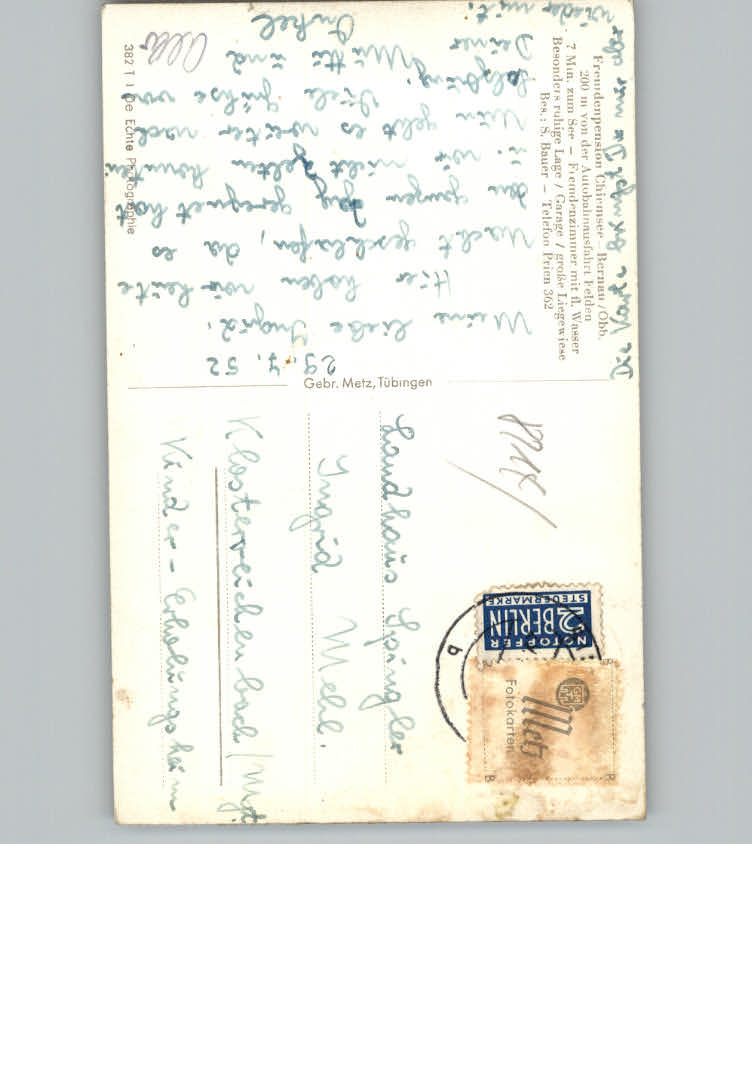 Fremdenpension Chiemsee Bernau/Obb.
200 m von der Autobahnausfahrt Felden
7 Min. zum See – Fremdenzimmer mit fl. Wasser
Besonders ruhige Lage / Garage / große Liegewiese
Bes.: S. Bauer – Telefon Prien 362
29.7.52
Meine liebe Ingrid,
Hier haben wir heute
Nacht geschlafen, da es
den ganzen Tag geregnet hat
u. wir nicht zelten konnten
Nun geht es weiter nach
Salzburg. Viele Grüße von
Deiner Mutti und
Onkel
Die Karte bringst Du mir aber
wieder mit.
382 T I De Echte Photographie
Gebr. Metz, Tübingen
Landhaus Spingler
Ingrid Mehl.
Klosterreichenbach/Mgt.
Kinder-Erholungsheim
NOTOPFER
2 BERLIN
STEUERMARKE
Metz
Fotokarten
b